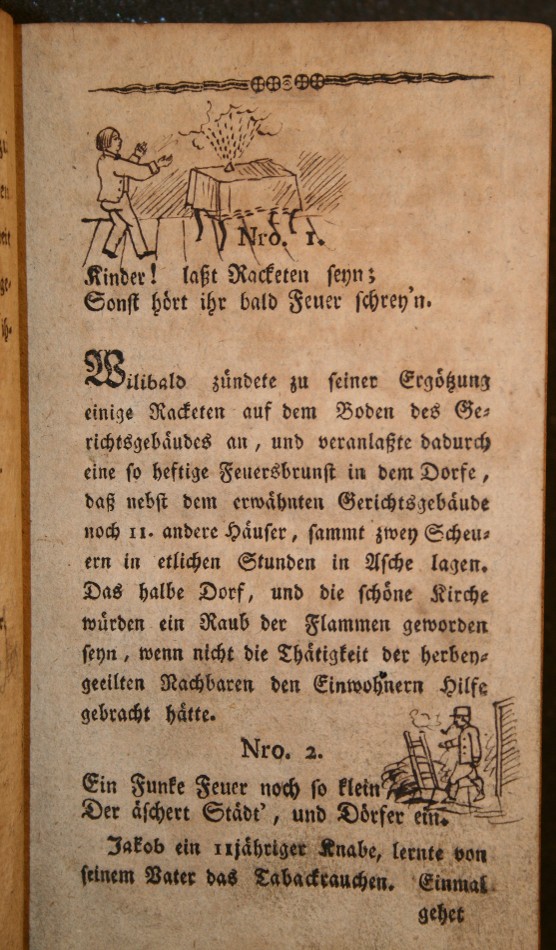 Nro. 1.
Kinder! laßt Racketen seyn;
Sonst hört ihr bald Feuer schrey'n.
Wilibald zündete zu seiner Ergötzung
einige Racketen auf dem Boden des Ge⸗
richtsgebäudes an, und veranlaßte dadurch
eine so heftige Feuersbrunst in dem Dorfe,
daß nebst dem erwähnten Gerichtsgebäude
noch 11. andere Häuser, sammt zwey Scheu⸗
ern in etlichen Stunden in Asche lagen.
Das halbe Dorf, und die schöne Kirche
würden ein Raub der Flammen geworden
seyn, wenn nicht die Thätigkeit der herbey⸗
geeilten Nachbaren den Einwohnern Hilfe
gebracht hätte.
Nro. 2.
Ein Funke Feuer noch so klein
Der äschert Städt', und Dörfer ein.
Jakob ein 11jähriger Knabe, lernte von
seinem Vater das Tabackrauchen. Einmal
gehet